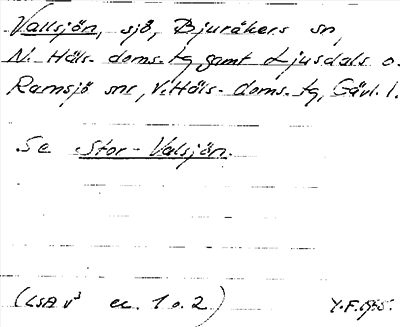 Vallsjön, sjö, Bjuråkers sn,
N. Häls. doms. tg samt Ljusdals o.
Ramsjö snr, V. Häls. doms. tg, Gävl. l.
Se Stor-Valsjön.
(LSA V³ ec. 1 o. 2)
Y.F. 1955.